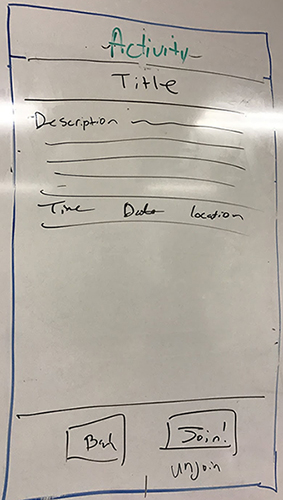 Activity
Title
Description
Time Date location
Back Join!
unjoin